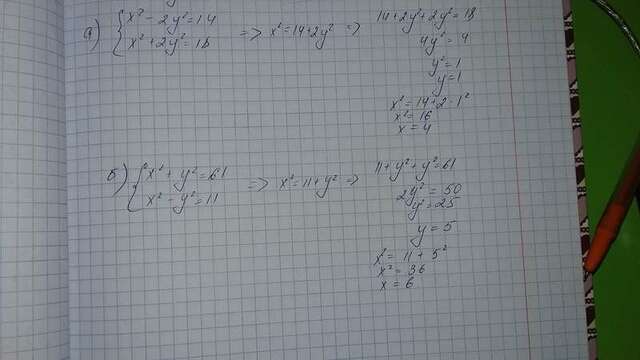 a) { x² - 2y² = 14
x² + 2y² = 18 => x² = 14 + 2y² =>
14 + 2y² + 2y² = 18
4y² = 4
y² = 1
y = 1
x² = 14 + 2 · 1²
x² = 16
x = 4
б) { x² + y² = 61
x² - y² = 11 => x² = 11 + y² =>
11 + y² + y² = 61
2y² = 50
y² = 25
y = 5
x² = 11 + 5²
x² = 36
x = 6